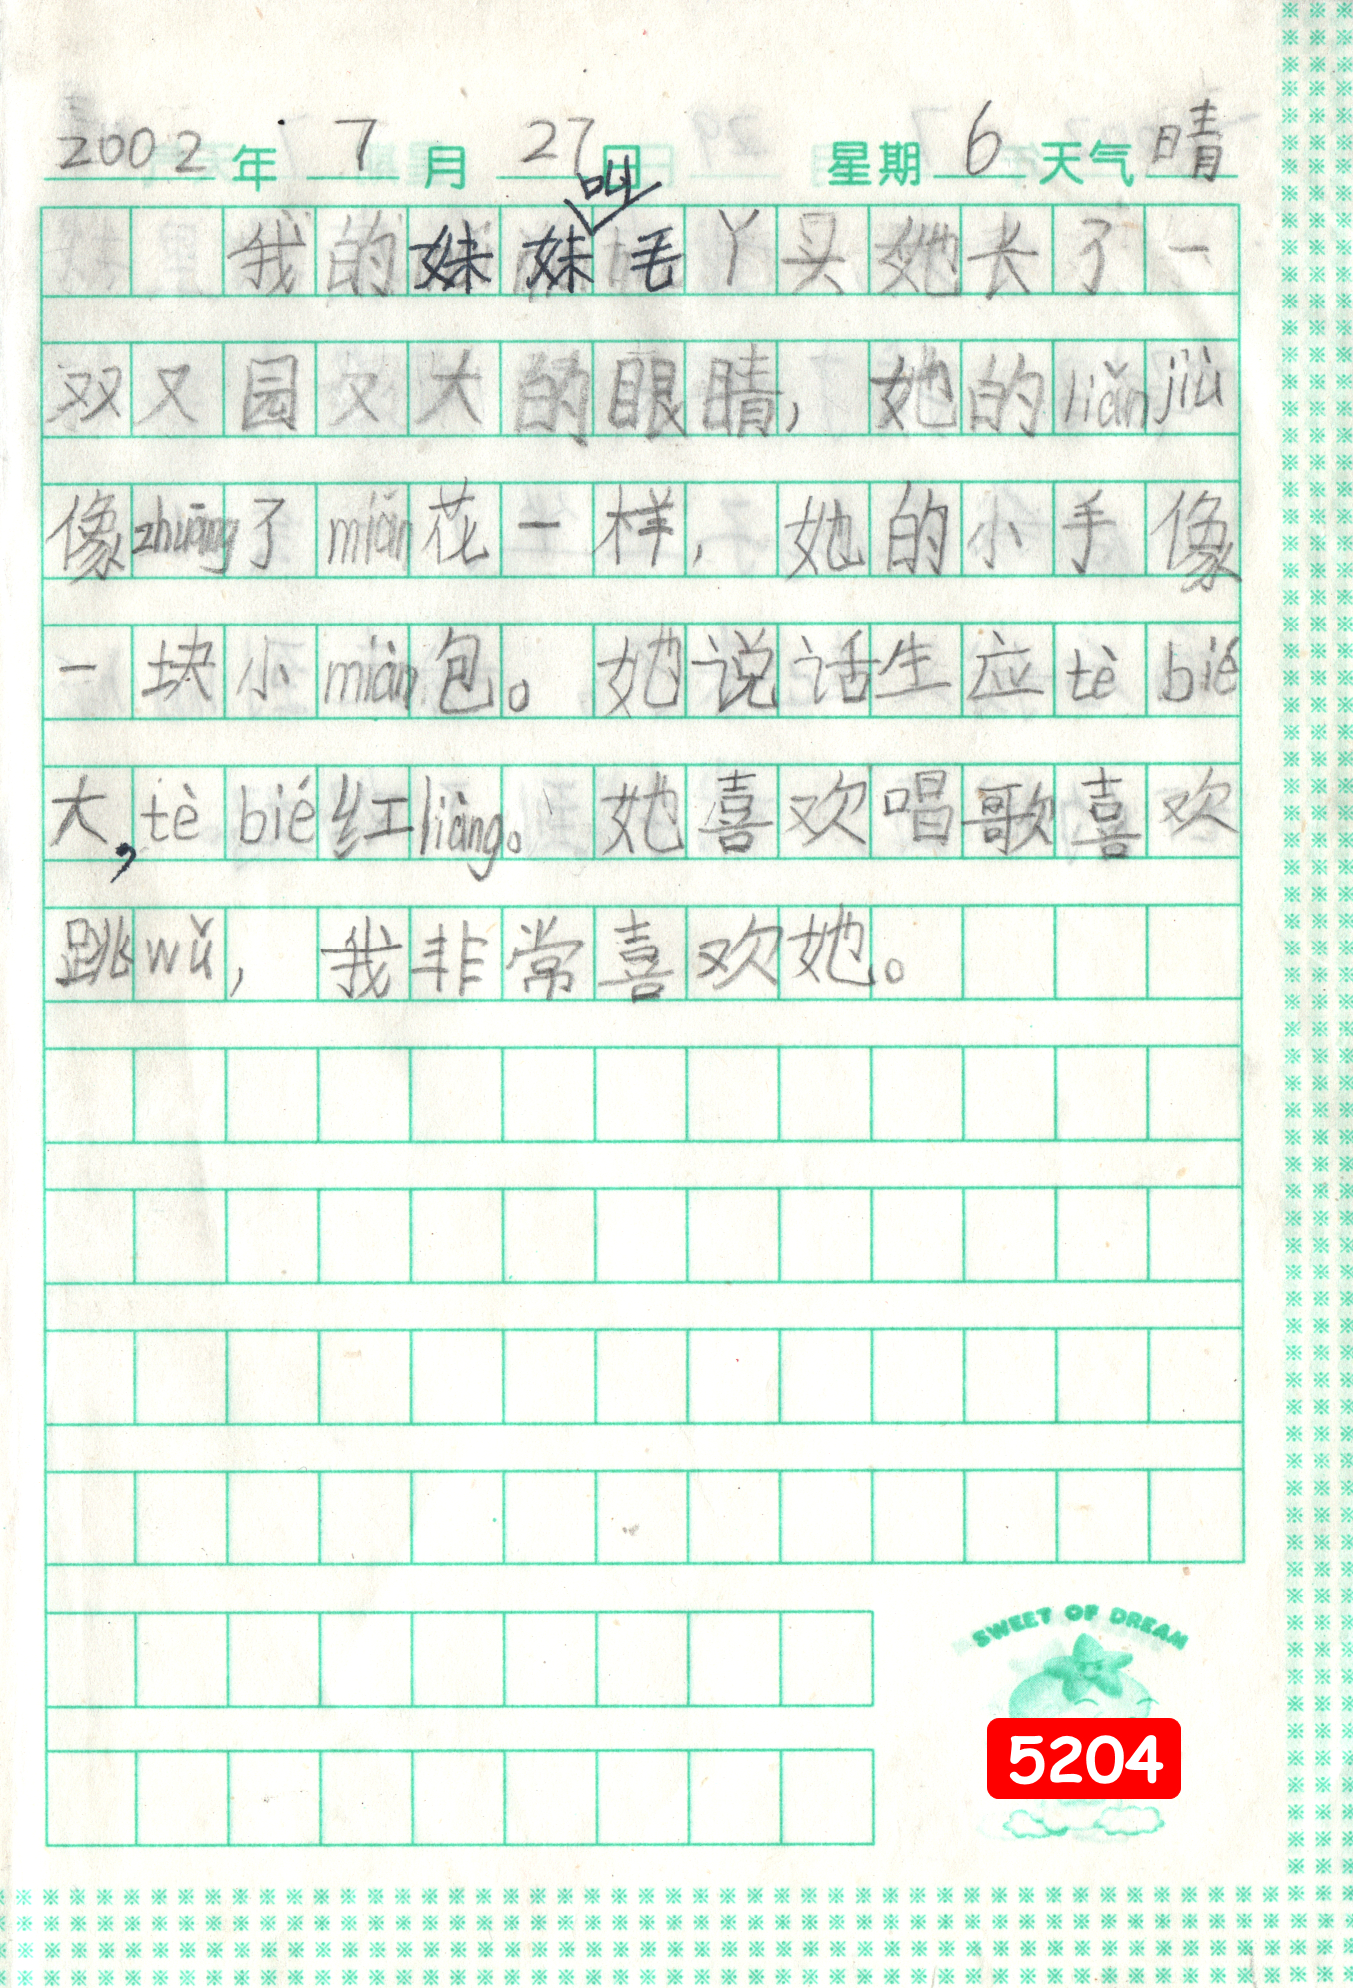 2002年 7月 27日 星期 6 天气 晴
叫
我的妹妹毛丫头她长了一
双又园又大的眼睛，她的liǎnjiù
像zhuāng了mián花一样，她的小手像
一块小miàn包。她说话生应tè bié
大，tè bié红liàng。她喜欢唱歌喜欢
跳wǔ，我非常喜欢她。
SWEET OF DREAM
5204